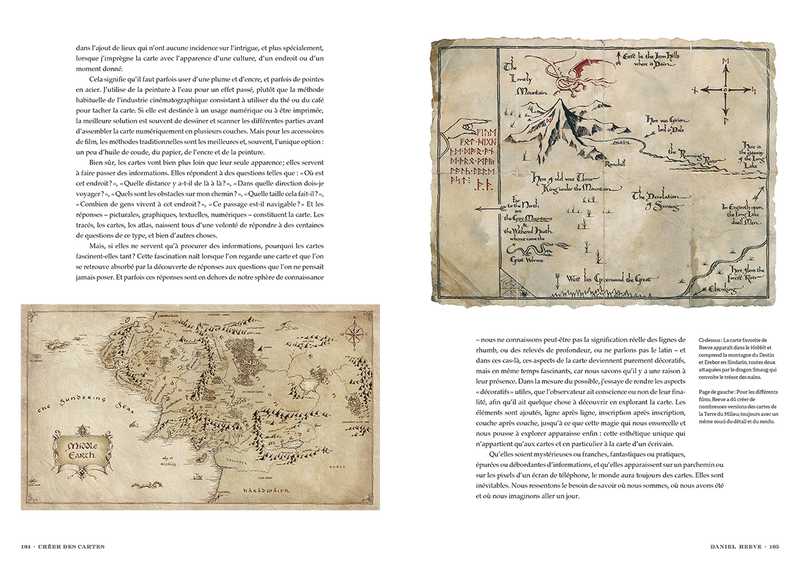 dans l'ajout de lieux qui n'ont aucune incidence sur l'intrigue, et plus spécialement,
lorsque j'imprègne la carte avec l'apparence d'une culture, d'un endroit ou d'un
moment donné.
Cela signifie qu'il faut parfois user d'une plume et d'encre, et parfois de pointes
en acier. J'utilise de la peinture à l'eau pour un effet passé, plutôt que la méthode
habituelle de l'industrie cinématographique consistant à utiliser du thé ou du café
pour tacher la carte. Si elle est destinée à un usage numérique ou à être imprimée,
la meilleure solution est souvent de dessiner et scanner les différentes parties avant
d'assembler la carte numériquement en plusieurs couches. Mais pour les accessoires
de film, les méthodes traditionnelles sont les meilleures et, souvent, l'unique option :
un peu d'huile de coude, du papier, de l'encre et de la peinture.
Bien sûr, les cartes vont bien plus loin que leur seule apparence; elles servent
à faire passer des informations. Elles répondent à des questions telles que : « Où est
cet endroit ? », « Quelle distance y a-t-il de là à là ? », « Dans quelle direction dois-je
voyager ? », « Quels sont les obstacles sur mon chemin ? », « Quelle taille cela fait-il ? »,
« Combien de gens vivent à cet endroit ? », « Ce passage est-il navigable ? » Et les
réponses – picturales, graphiques, textuelles, numériques – constituent la carte. Les
tracés, les cartes, les atlas, naissent tous d'une volonté de répondre à des centaines
de questions de ce type, et bien d'autres choses.
Mais, si elles ne servent qu'à procurer des informations, pourquoi les cartes
fascinent-elles tant ? Cette fascination naît lorsque l'on regarde une carte et que l'on
se retrouve absorbé par la découverte de réponses aux questions que l'on ne pensait
jamais poser. Et parfois ces réponses sont en dehors de notre sphère de connaissance
The Sundering Seas
Middle
Earth
HARADWAITH
184 · CRÉER DES CARTES
The
Lonely
Mountain
East lie the Iron Hills
where is Dain.
Here was Girion
lord in Dale
Ravenhill
the Running River
Here of old was Thror
King under the Mountain
The Desolation
of Smaug
Far
to the North
are the Grey Mountains
&
the Withered Heath
whence came the
Great Worms
West lies Greenwood the Great
– nous ne connaissons peut-être pas la signification réelle des lignes de
rhumb, ou des relevés de profondeur, ou ne parlons pas le latin – et
dans ces cas-là, ces aspects de la carte deviennent purement décoratifs,
mais en même temps fascinants, car nous savons qu'il y a une raison à
leur présence. Dans la mesure du possible, j'essaye de rendre les aspects
« décoratifs » utiles, que l'observateur ait conscience ou non de leur fina-
lité, afin qu'il ait quelque chose à découvrir en explorant la carte. Les
éléments sont ajoutés, ligne après ligne, inscription après inscription,
couche après couche, jusqu'à ce que cette magie qui nous ensorcelle et
nous pousse à explorer apparaisse enfin : cette esthétique unique qui
n'appartient qu'aux cartes et en particulier à la carte d'un écrivain.
Qu'elles soient mystérieuses ou franches, fantastiques ou pratiques,
épurées ou débordantes d'informations, et qu'elles apparaissent sur un parchemin ou
sur les pixels d'un écran de téléphone, le monde aura toujours des cartes. Elles sont
inévitables. Nous ressentons le besoin de savoir où nous sommes, où nous avons été
et où nous imaginons aller un jour.
Ci-dessus : La carte favorite de
Reeve apparaît dans le Hobbit et
comprend la montagne du Destin
et Erebor en Sindarin, toutes deux
attaquées par le dragon Smaug qui
convoite le trésor des nains.
Page de gauche : Pour les différents
films, Reeve a dû créer de
nombreuses versions des cartes de
la Terre du Milieu, toujours avec un
même souci du détail et du rendu.
DANIEL REEVE · 185